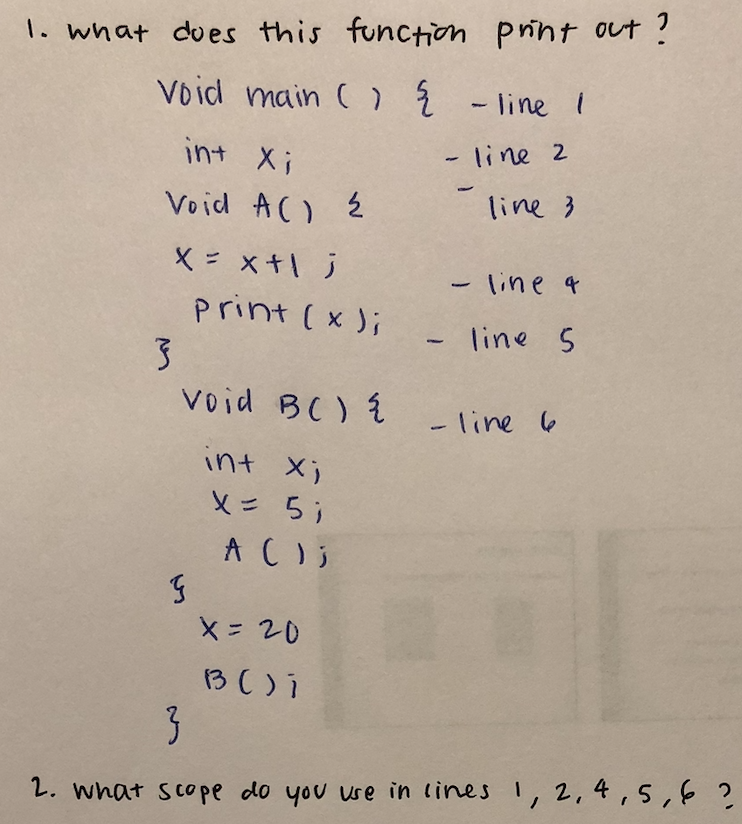 1. what does this function print out ?
Void main ( ) { - line 1
int x; - line 2
Void A() { - line 3
x = x+1 ; - line 4
print ( x ); - line 5
}
Void B() { - line 6
int x;
x = 5;
A ( );
}
x = 20
B ( );
}
2. what scope do you use in lines 1, 2, 4, 5, 6 ?